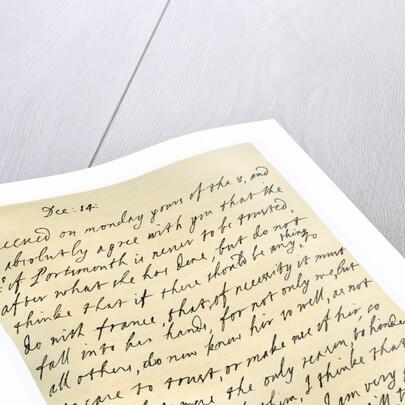 Dec: 14:
eceued on monday yours of the 8, and
absolutly agree with you that the
: of Portsmouth is never to be trusted,
after what she has done, but do not
thinke that if there should be any thing to
do with france, that, of necessity it must
fall into her hands, for not only me, but
all others, do now know her so well, as not
care to trust, or make use of her, so
were the only reason, to hinder
him, I thinke that
I am very